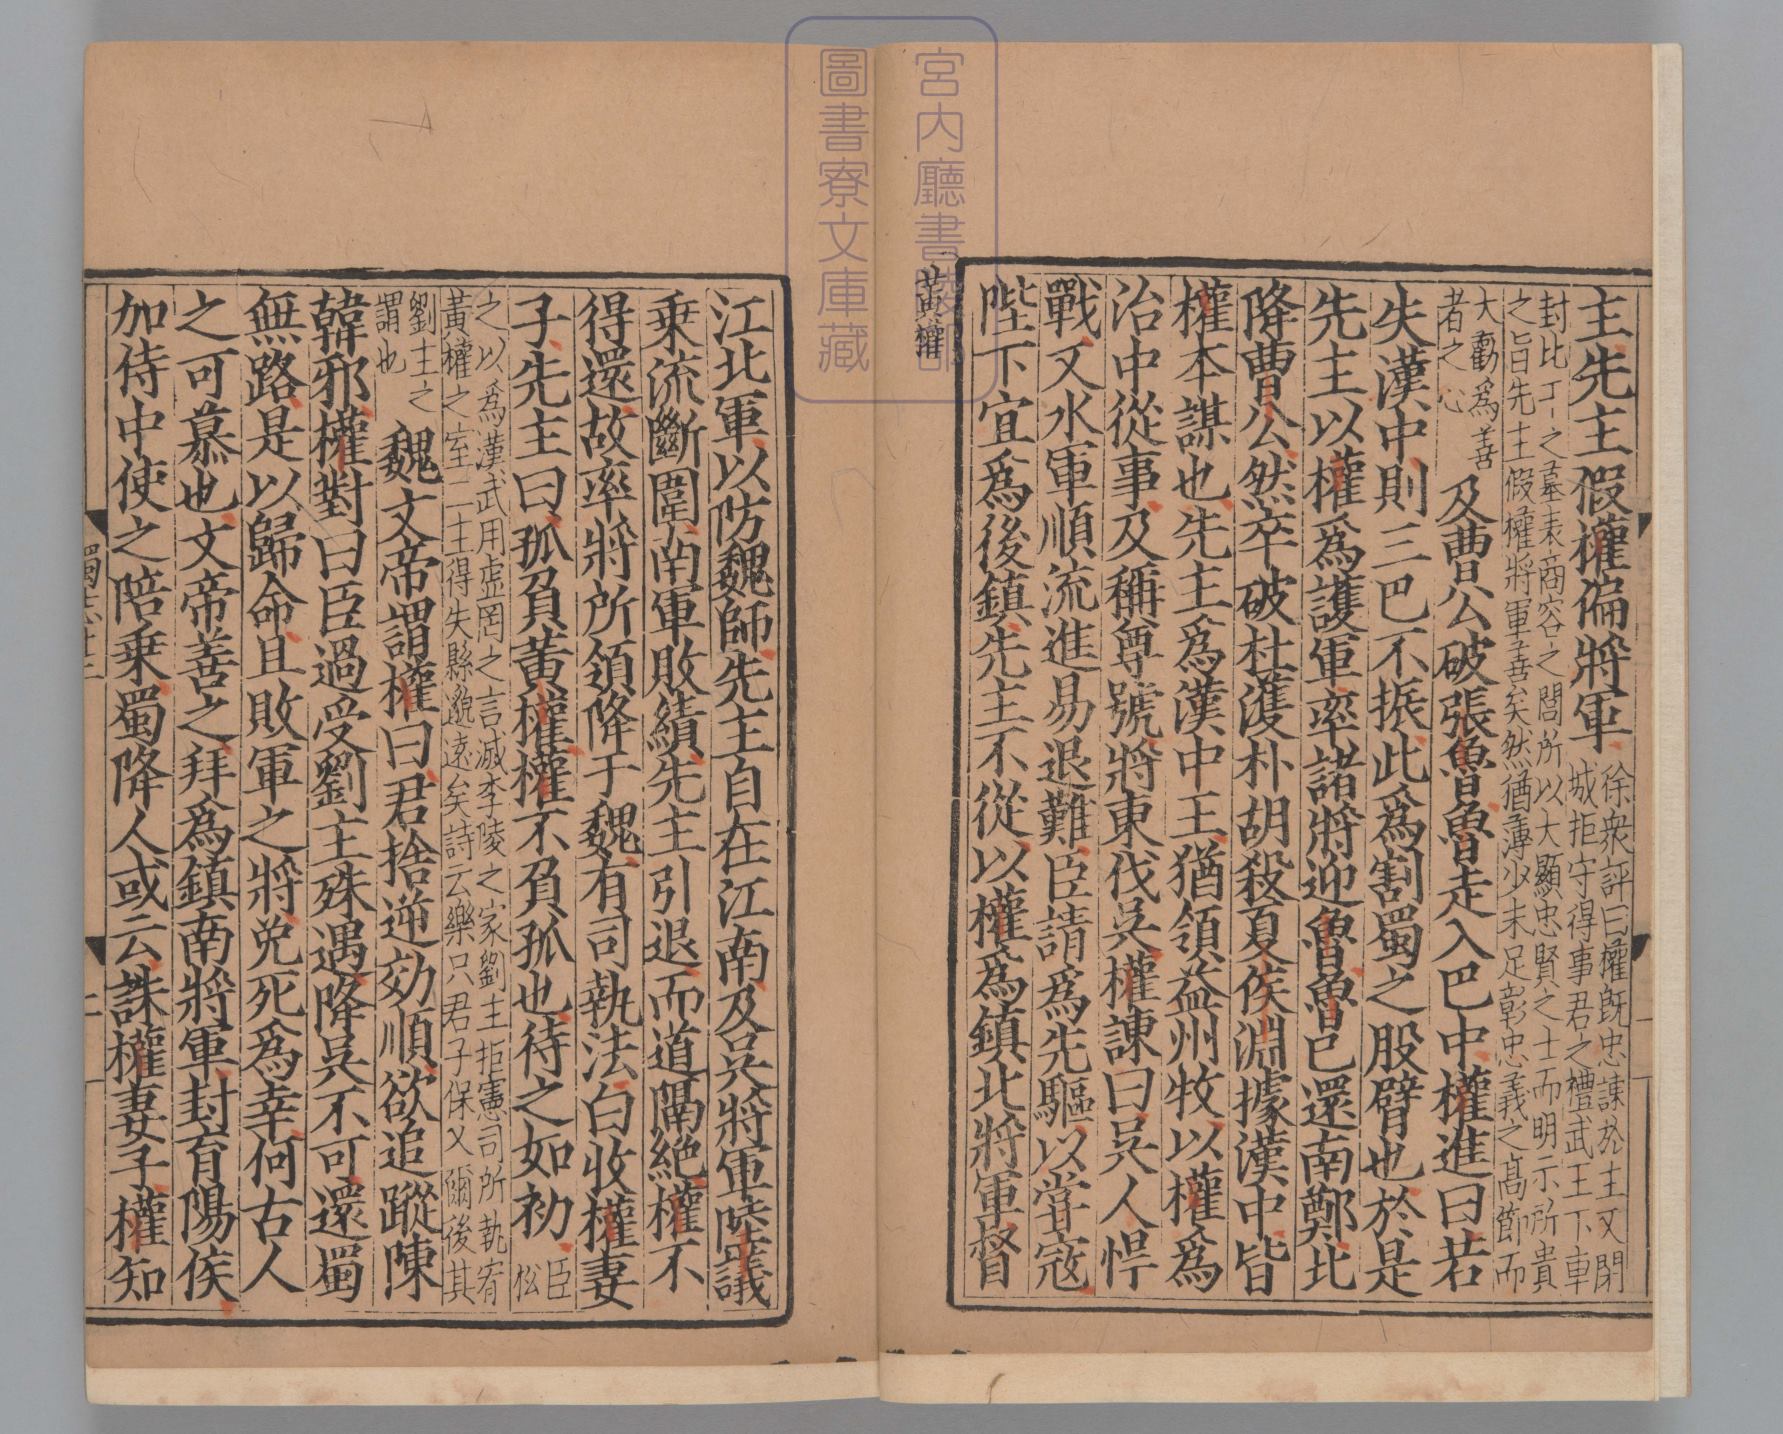 主先主假權偏將軍
徐衆評曰權旣忠諫於主又閉
城拒守得事君之禮武王下車
封比干之墓表商容之閭所以大顯忠賢之士而明示所貴
之旨先主假權將軍善矣然猶薄少未足彰忠義之高節而
大勸爲善
者之心
及曹公破張魯魯走入巴中權進曰若
失漢中則三巴不振此爲割蜀之股臂也於是
先主以權爲護軍率諸將迎魯魯已還南鄭北
降曹公然卒破杜濩朴胡殺夏侯淵據漢中皆
權本謀也先主爲漢中王猶領益州牧以權爲
治中從事及稱尊號將東伐吳權諫曰吳人悍
戰又水軍順流進易退難臣請爲先驅以甞寇
陛下宜爲後鎮先主不從以權爲鎮北將軍督
黃權
宮內廳書陵部
圖書寮文庫藏
江北軍以防魏師先主自在江南及吳將軍陸議
乗流斷圍南軍敗績先主引退而道隔絶權不
得還故率將所領降于魏有司執法白收權妻
子先主曰孤負黃權權不負孤也待之如初
臣
松
之以爲漢武用虛罔之言滅李陵之家劉主拒憲司所執宥
黃權之室二主得失縣邈遠矣詩云樂只君子保乂爾後其
劉主之
謂也
魏文帝謂權曰君捨逆効順欲追蹤陳
韓邪權對曰臣過受劉主殊遇降吳不可還蜀
無路是以歸命且敗軍之將免死爲幸何古人
之可慕也文帝善之拜爲鎮南將軍封育陽侯
加侍中使之陪乗蜀降人或云誅權妻子權知
蜀志十三
二